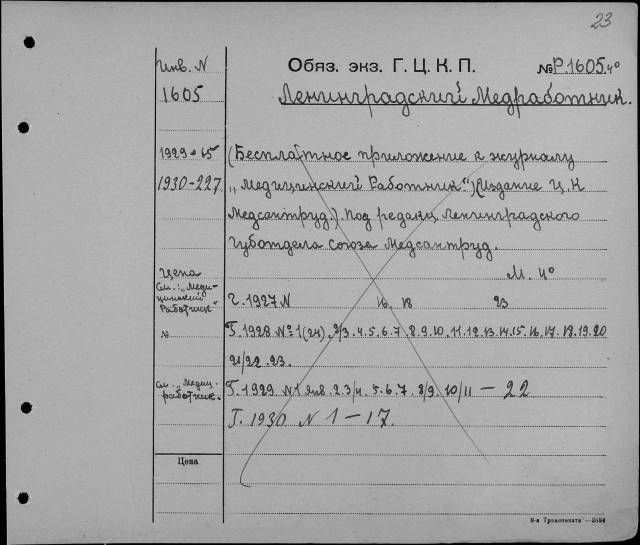 23
Инв. N
Обяз. экз. Г. Ц. К. П.
№ Р.1605 4º
1605
Ленинградский Медработник.
1929-65
(Бесплатное приложение к журналу
1930-227
„Медицинский Работник“) (Издание Ц. К
Медсантруд.). Под редакц. Ленинградского
Губотдела союза Медсантруд.
Цена
М. 4º
См.: „Меди-
цинский
Работник“
Г. 1927 N 16. 18 23
№
Г. 1928 № 1(24). 2/3. 4. 5. 6. 7 8. 9. 10. 11. 12. 13. 14. 15. 16. 17. 18. 19. 20
21/22. 23.
См. „Медиц.
работник.
Г. 1929 N 1 янв. 2. 3/4. 5. 6. 7. 8/9. 10/11 — 22
Г. 1930 N 1 — 17.
Цена